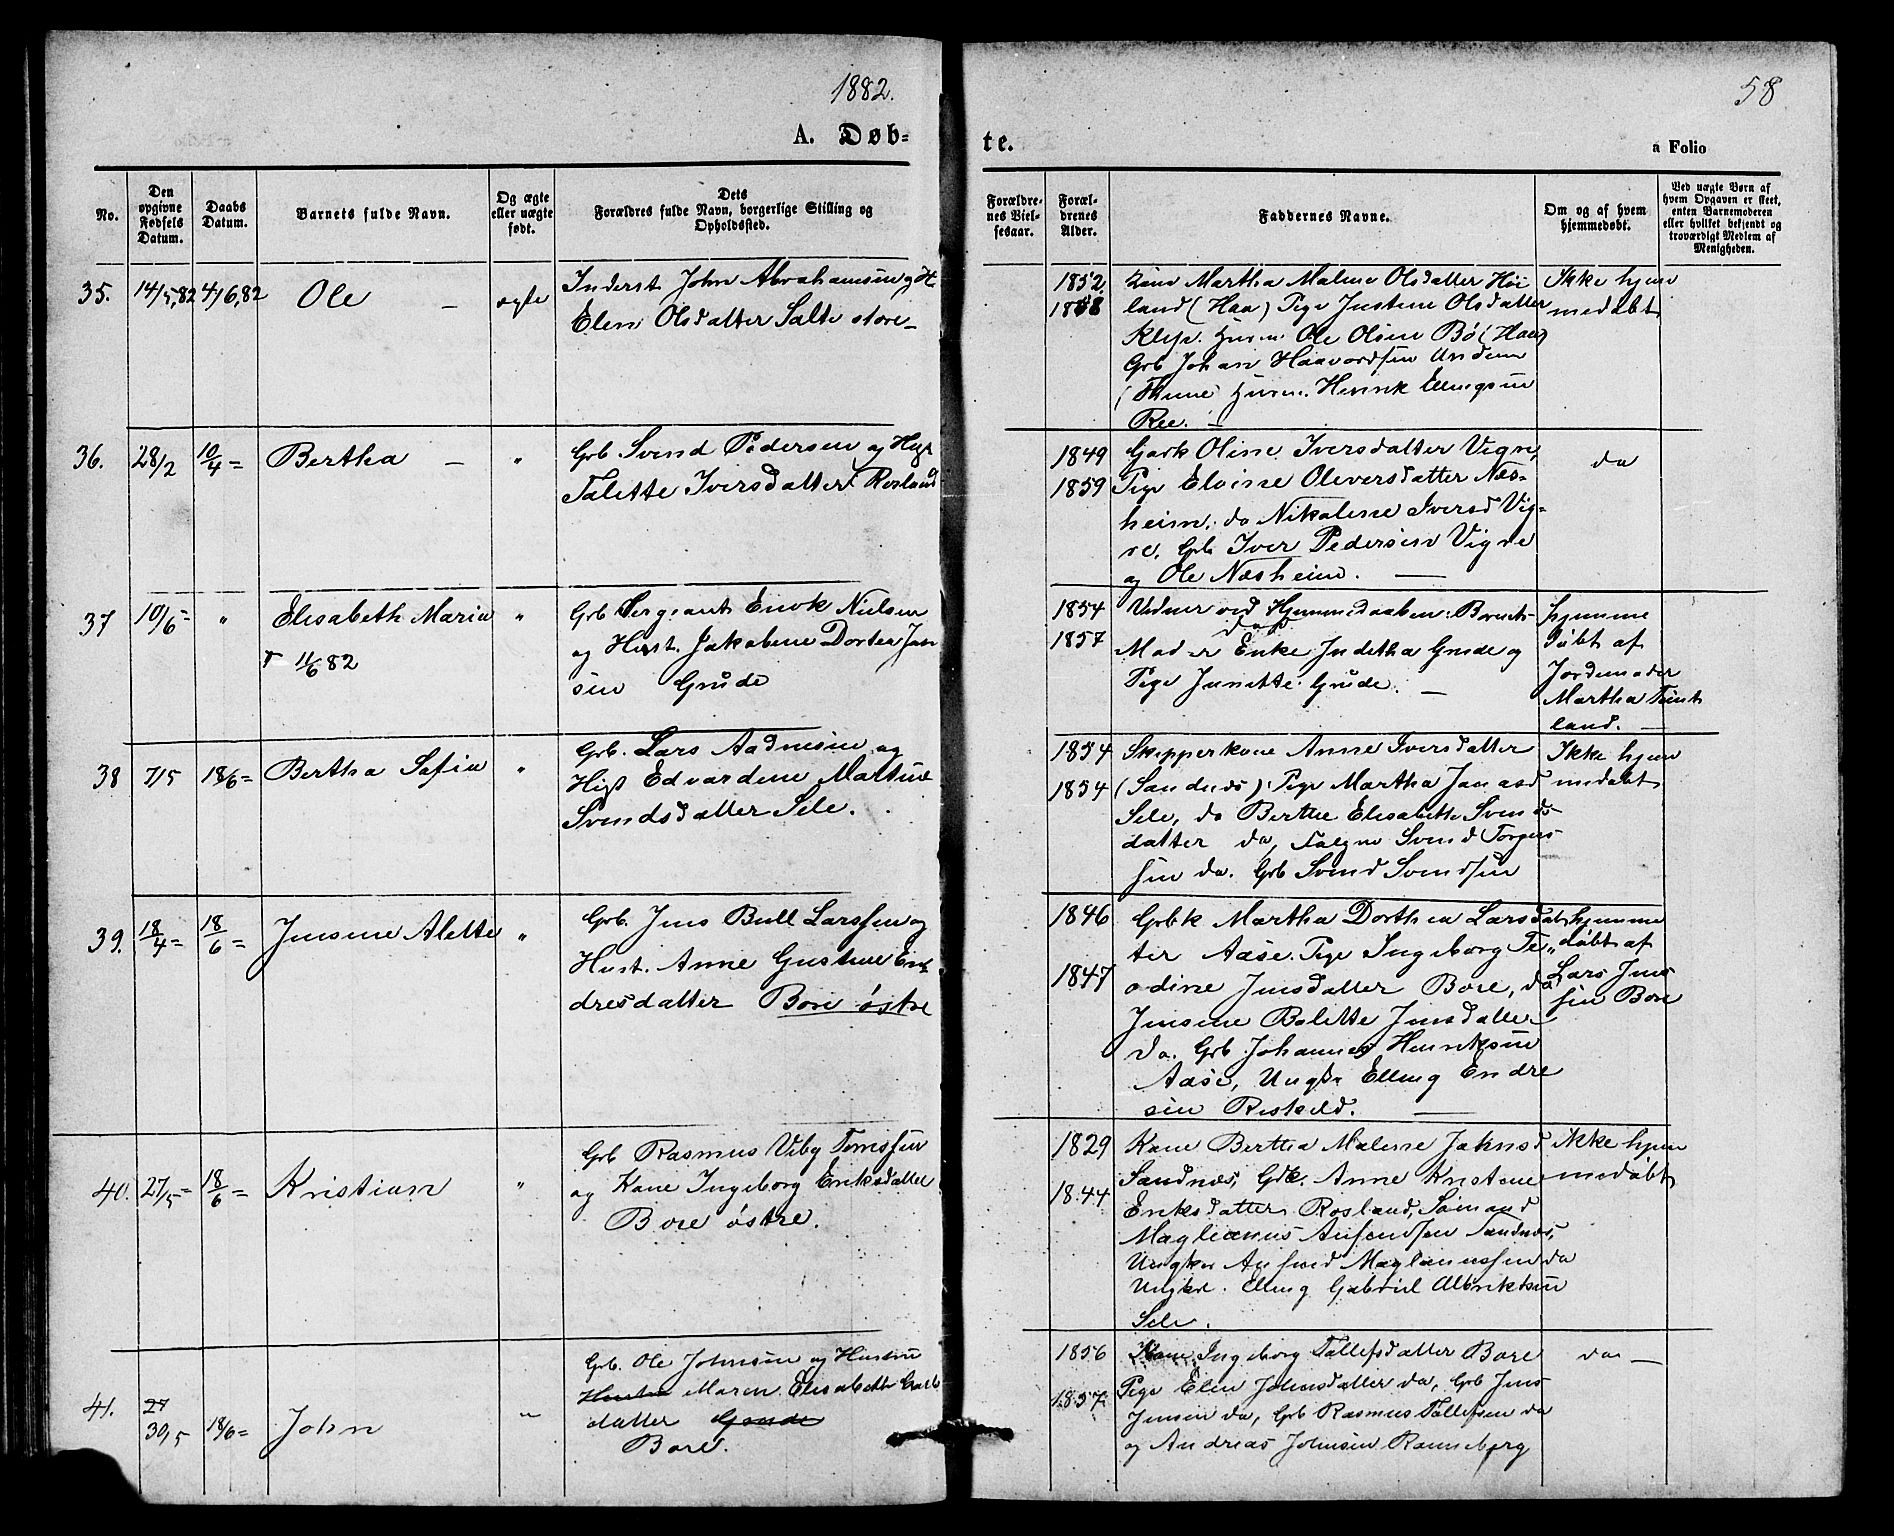 1882.
58
A. Døb-
te.
a Folio
No.
Den opgivne Fødsels Datum.
Daabs Datum.
Barnets fulde Navn.
Og ægte eller uægte født.
Dets Forældres fulde Navn, borgerlige Stilling og Opholdssted.
Forældrenes Vielsesaar.
Forældrenes Alder.
Faddernes Navne.
Om og af hvem hjemmedøbt.
Ved uægte Børn af hvem Opgaven er skeet, enten Barnemoderen eller hvilket bekjendt og troværdigt Medlem af Menigheden.
35. 14/5,82 4/6,82 Ole — ægte
Inderst John Abrahamsen og H
Elen Olsdatter Salte store
1852.
Kone Martha Malene Olsdatter Höi
land (Haa) Pige Justine Olsdatter
Klep. Ole Olsen Bö (Haa)
Grb Johan Haavardsen Undem
(Thime) Henrik Ellingsen
Ree.
Ikke hjem
medöbt
36. 28/2 10/4 = Bertha — "
Grb Svend Pedersen og Hust
Talette Iversdatter Rosland
1849
1859
Oline Iversdatter Vigre,
Pige Eloine Oleversdatter Næs-
heim, do Nikoline Iversd Vig-
re. Grb Iver Pedersen Vigre
og Ole Næsheim. —
da
37 10/6 = " Elisabeth Maria "
11/6 82
Grb Sergeant Enok Nielsen
og Hust. Jakobine Dortea Jan
sen Grude
1854
1857
Vidner ved Hjemmedaaben: Barnets
Moder Enke Juditha Grude og
Pige Junette Grude. —
hjemme
döbt af
Jordemoder
Martha
land. —
38 7/5 18/6 = Bertha Sofia "
Grb. Lars Aadnesen og
Hust Edvardine Martine
Svendsdatter Sele.
1854
1854
Skipperkone Anne Iversdatter
(Sandnes) Pige Martha Janasd
Sele, do Berthe Elisabeth Svends-
datter do, Svend Torgers-
sen do. Grb Svend Svendsen
Ikke hjem
medöbt
39. 18/4 = 18/6 = Jensine Alette "
Grb. Jens Bull Larssen og
Hust. Anne Gustine End
dresdatter Bore östre
1846
1847
Grbk Martha Dorthea Larsdat
ter Aase. Pige Ingeborg Te
odine Jensdatter Bore, do
Jensine Bolette Jensdatter
do. Grb Johannes Henriksen
Aase, Ungkr Elling Endre
sen Reskeld. —
hjemme
döbt af
Lars Jens
sen Bore
40. 27/5 = 18/6 = Kristian "
Grb Rasmus Viby Tönnessen
og Kone Ingeborg Eriksdatter
Bore östre.
1829
1844
Kone Bertha Malene Jahnsd
Sandnes, Gdk. Anne Kristine
Eriksdatter Rosland, Sömand
Maglianus Aufendsen Sandnes,
Ungkr Aufend Maglianussen do
Ungkr. Elling Gabriel Albriktsen
Sele.
Ikke hjem
medöbt
41. 27 30/5 18/6 = John "
Grb. Ole Johnsen og Hustru
Hustru Maren Elisabeth
datter Grude
Bore.
1856
1857
Kone Ingeborg Tollefsdatter Bore
Pige Elen Johnsdatter do, Grb Jens
Jensen do, Grb Rasmus Tollefsen do
og Andreas Johnsen Ranneberg
da —